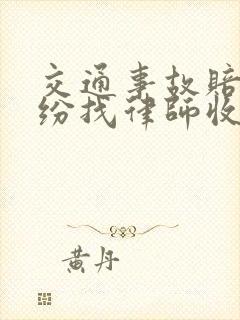 交通事故赔
纷找律师收
黄丹